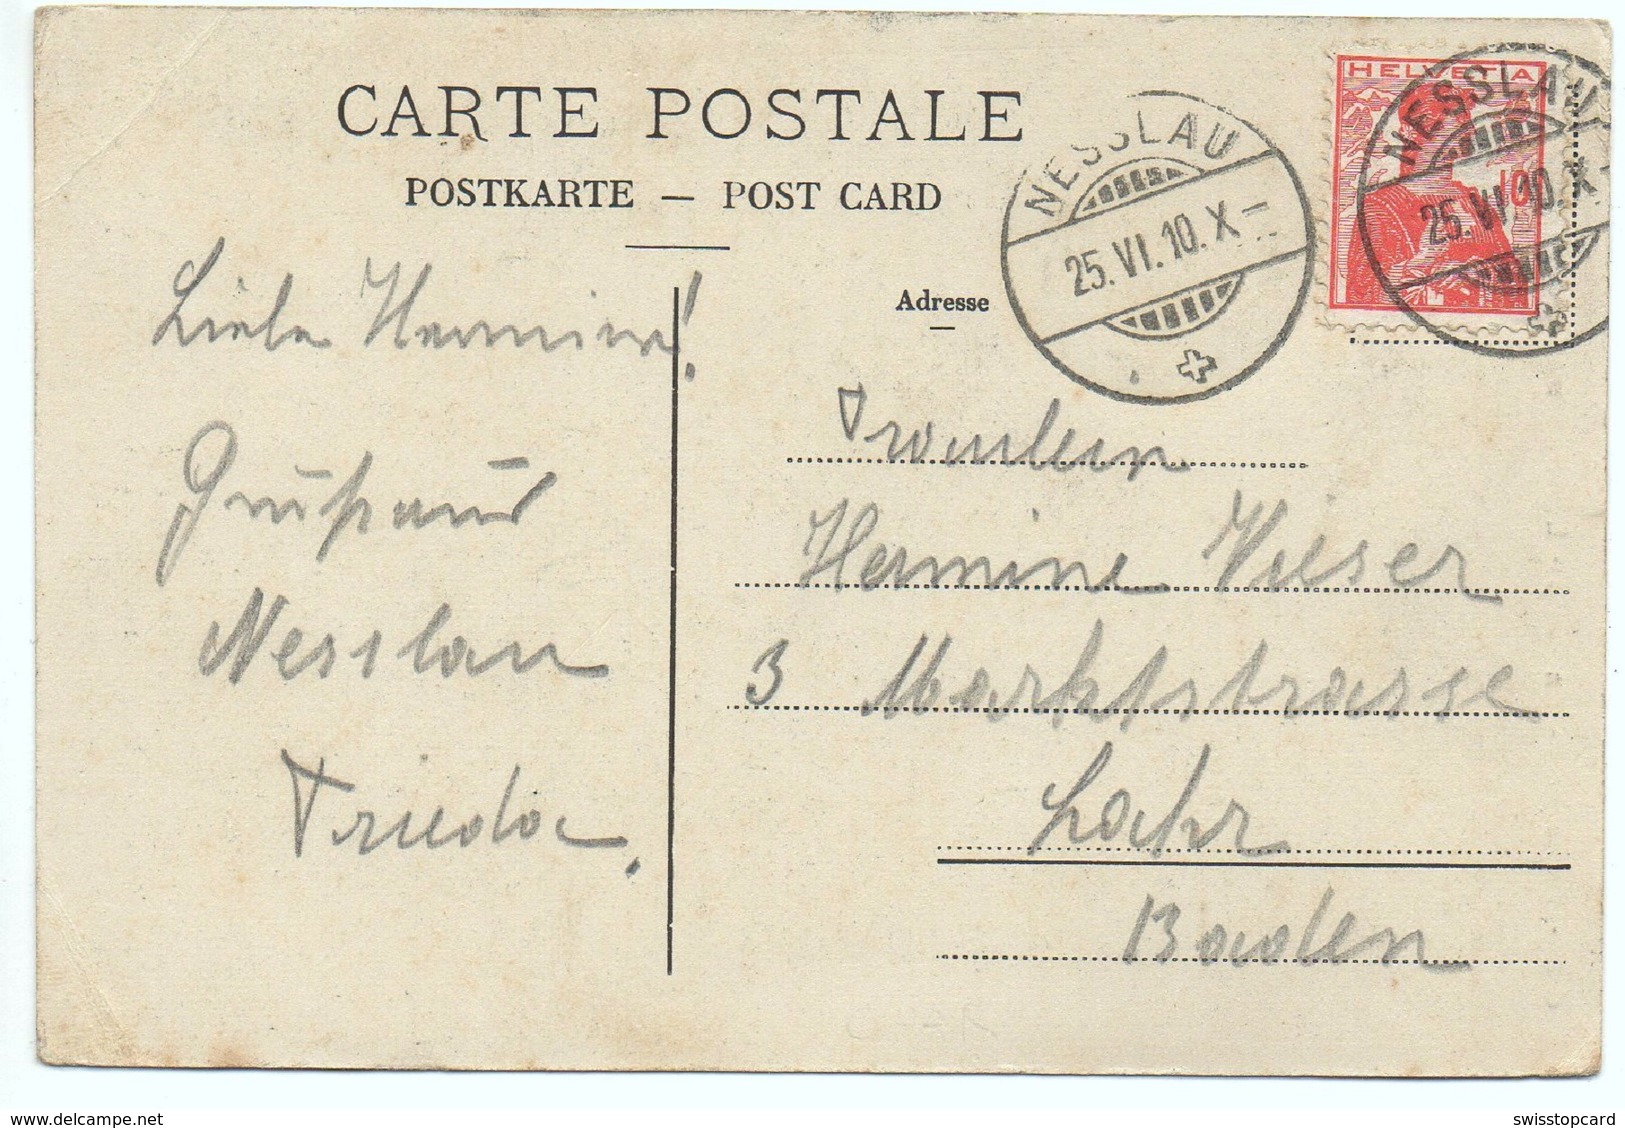 CARTE POSTALE
POSTKARTE — POST CARD
Adresse
HELVETIA
10
NESSLAU
25.VI.10.X–
NESSLAU
25.VI.10.X–
Liebe Hermine!
Gruß aus
Nesslau
Frieda.
Fräulein
Hermine Vieser
3 Marktstrasse
Lahr
Baden
www.delcampe.net
swisstopcard